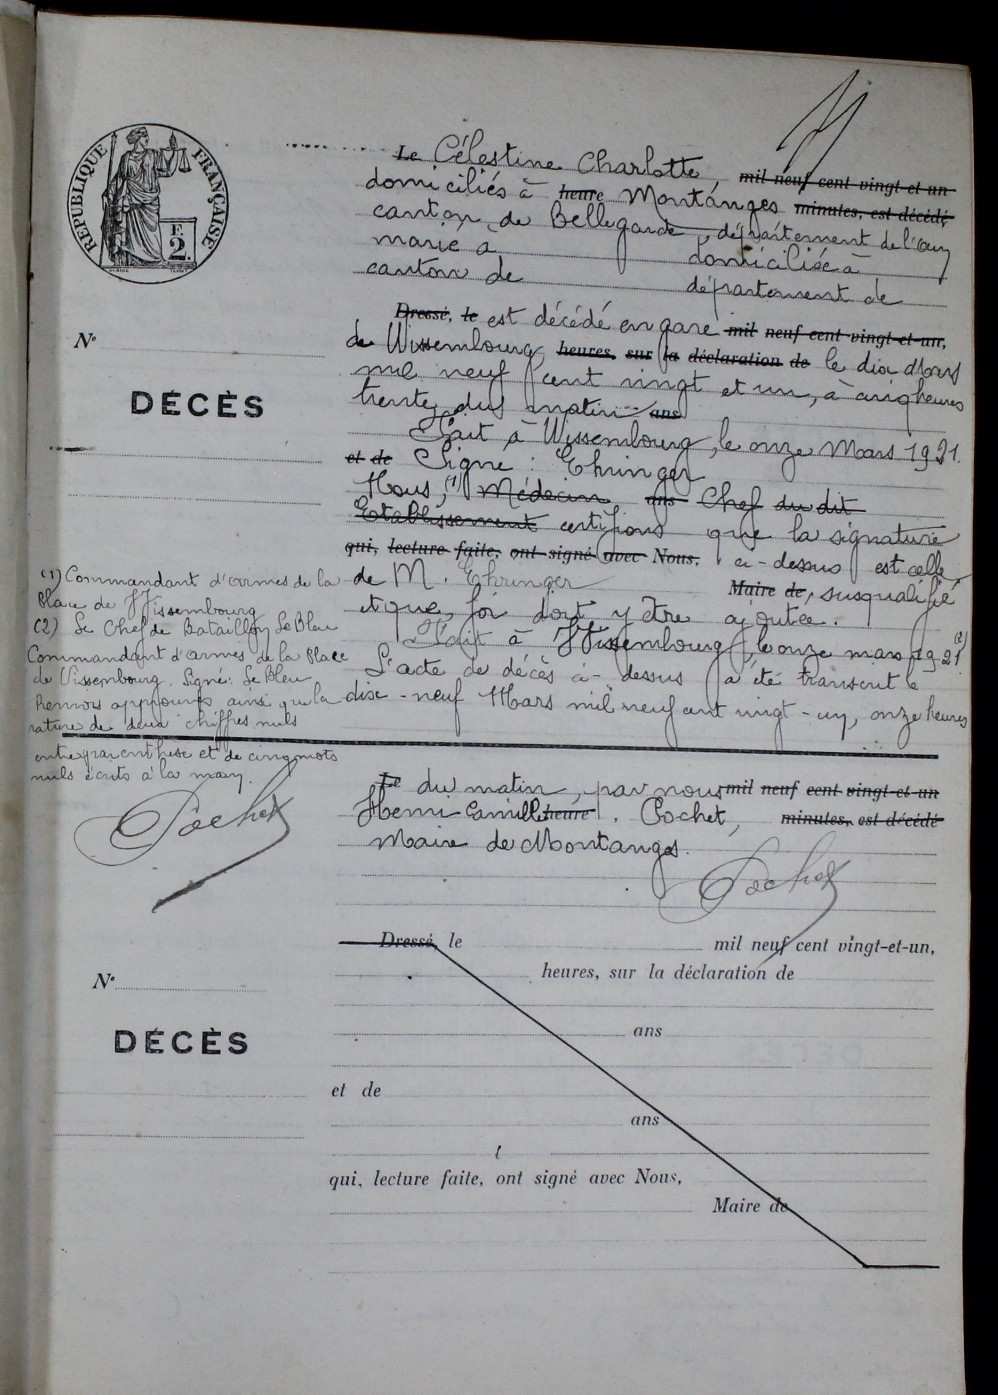 RÉPUBLIQUE FRANÇAISE
E
2.
Le Célestine Charlotte, mil neuf cent vingt-et-un
domiciliés à heure Montanges minutes, est décédé,
canton de Bellegarde, département de l'Ain
marié à domiciliée à
canton de département de
Dressé, le est décédé en gare mil neuf cent vingt-et-un,
de Wissembourg heures, sur la déclaration de le dix Mars
mil neuf cent vingt et un, à cinq heures
trente du matin ans
Fait à Wissembourg, le onze Mars 1921.
et de Signé : Ehringer
Nous, (1) Médecin ans Chef du dit
Etablissement certifions que la signature
qui, lecture faite, ont signé avec Nous, ci-dessus est celle
de M. Ehringer Maire de, susqualifié
et que foi doit y être ajoutée.
Fait à Wissembourg, le onze mars 1921 (2)
L'acte de décès ci-dessus a été transcrit le
dix-neuf Mars mil neuf cent vingt-un, onze heures
Le du matin, par nous mil neuf cent vingt-et-un
Henri Camille heure. Pochet, minutes, est décédé
Maire de Montanges.
Pochet
No
DÉCÈS
(1) Commandant d'armes de la
Place de Wissembourg
(2) Le Chef de Bataillon Le Bleu
Commandant d'armes de la Place
de Wissembourg. Signé: Le Bleu
Renvois approuvés ainsi que la
rature de deux chiffres nuls
entre parenthèse et de cinq mots
nuls écrits à la main.
Pochet
No
DÉCÈS
Dressé, le mil neuf cent vingt-et-un,
heures, sur la déclaration de
ans
et de
ans
l
qui, lecture faite, ont signé avec Nous,
Maire de